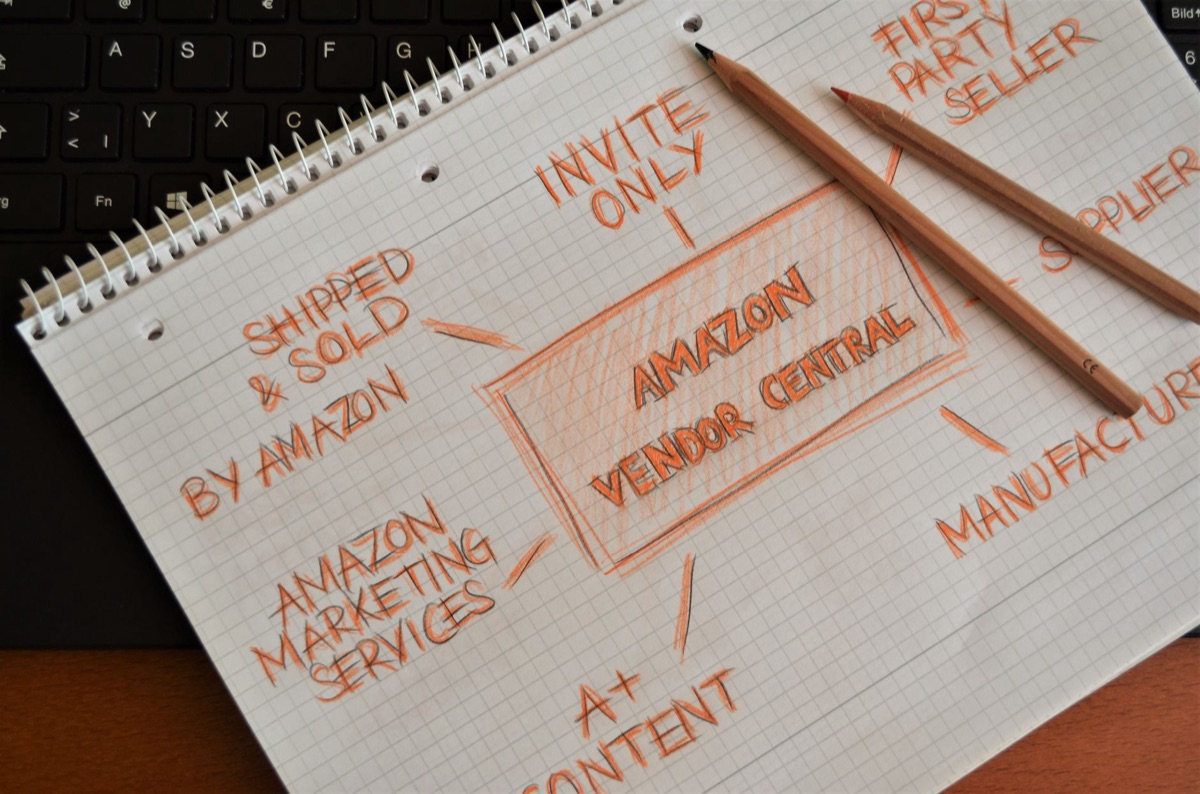 A S D F G H
Y X C
Fn
Bild
6
INVITE
ONLY
FIRST
PARTY
SELLER
SUPPLIER
SHIPPED
& SOLD
BY AMAZON
AMAZON
VENDOR CENTRAL
MANUFACTURE
AMAZON
MARKETING
SERVICES
A+
CONTENT